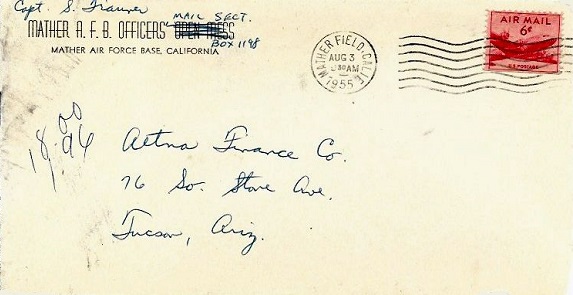 Capt. S. Traurer
MAIL SECT.
MATHER A.F.B. OFFICERS' OPEN MESS
BOX 1198
MATHER AIR FORCE BASE, CALIFORNIA
MATHER FIELD, CALIF.
AUG 3
30 AM
1955
AIR MAIL
6¢
U.S. POSTAGE
18.00
.96
Aetna Finance Co.
76 So. Stone Ave.
Tucson, Ariz.